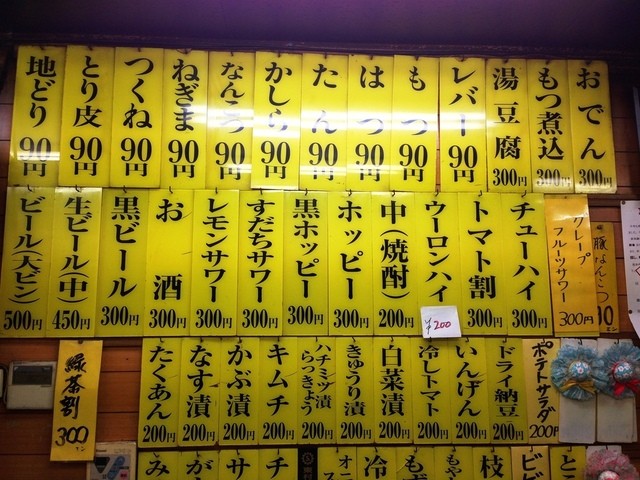 おでん 300円
もつ煮込 300円
湯豆腐 300円
レバー 90円
もつ 90円
はつ 90円
たん 90円
かしら 90円
なんこつ 90円
ねぎま 90円
つくね 90円
とり皮 90円
地どり 90円
豚なんこつ
グレープフルーツサワー 300円
チューハイ 300円
トマト割 300円
ウーロンハイ ¥200
中(焼酎) 200円
ホッピー 300円
黒ホッピー 300円
すだちサワー 300円
レモンサワー 300円
お酒 300円
黒ビール 300円
生ビール(中) 450円
ビール(大ビン) 500円
ポテトサラダ 200円
ドライ納豆 200円
いんげん 200円
冷しトマト 200円
白菜漬 200円
きゅうり漬 200円
ハチミツ漬らっきょう 200円
キムチ 200円
かぶ漬 200円
なす漬 200円
たくあん 200円
緑茶割 300円